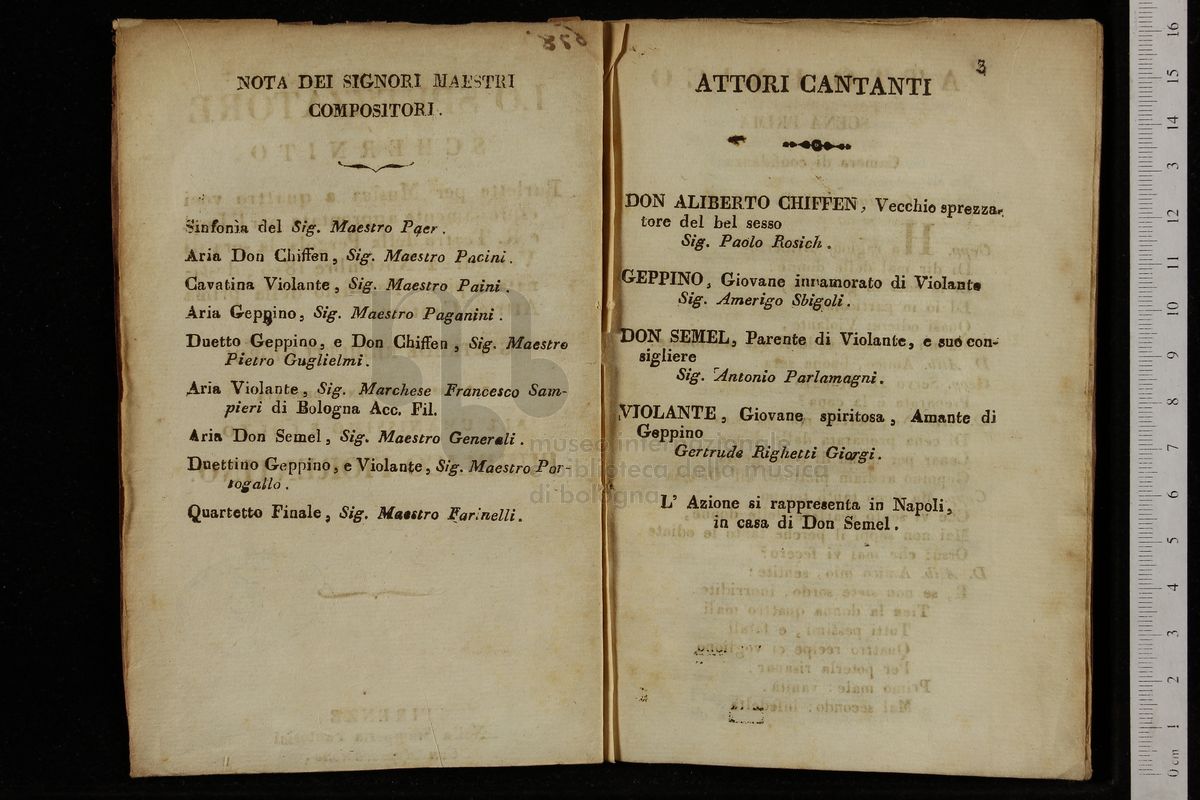 NOTA DEI SIGNORI MAESTRI
COMPOSITORI.
Sinfonia del Sig. Maestro Paer.
Aria Don Chiffen, Sig. Maestro Pacini.
Cavatina Violante, Sig. Maestro Paini.
Aria Geppino, Sig. Maestro Paganini.
Duetto Geppino, e Don Chiffen, Sig. Maestro
Pietro Guglielmi.
Aria Violante, Sig. Marchese Francesco Sam-
pieri di Bologna Acc. Fil.
Aria Don Semel, Sig. Maestro Generali.
Duettino Geppino, e Violante, Sig. Maestro Por-
togallo.
Quartetto Finale, Sig. Maestro Farinelli.
3
ATTORI CANTANTI
DON ALIBERTO CHIFFEN, Vecchio sprezza-
tore del bel sesso
Sig. Paolo Rosich.
GEPPINO, Giovane innamorato di Violante
Sig. Amerigo Sbigoli.
DON SEMEL, Parente di Violante, e suo con-
sigliere
Sig. Antonio Parlamagni.
VIOLANTE, Giovane spiritosa, Amante di
Geppino
Gertrude Righetti Giorgi.
L' Azione si rappresenta in Napoli,
in casa di Don Semel.
museo internazionale
e biblioteca della musica
di bologna
0 cm 1 2 3 4 5 6 7 8 9 10 11 12 13 14 15 16